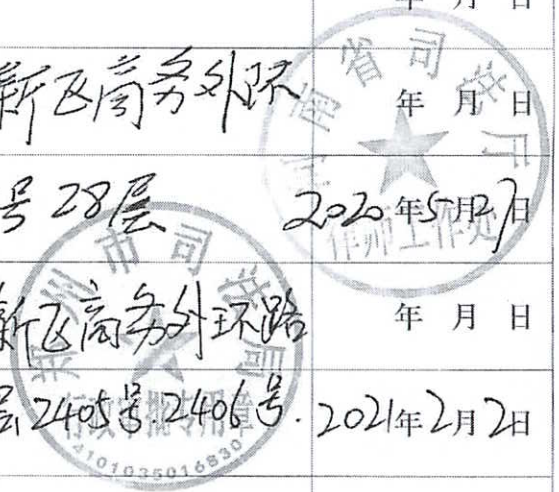 年 月 日
新区商务外环 年 月 日
号 28层 2020年5月27日
新区商务外环路 年 月 日
层2405号.2406号. 2021年2月2日
河南省司法厅
律师工作处
郑州市司法局
行政审批专用章
4101035016830